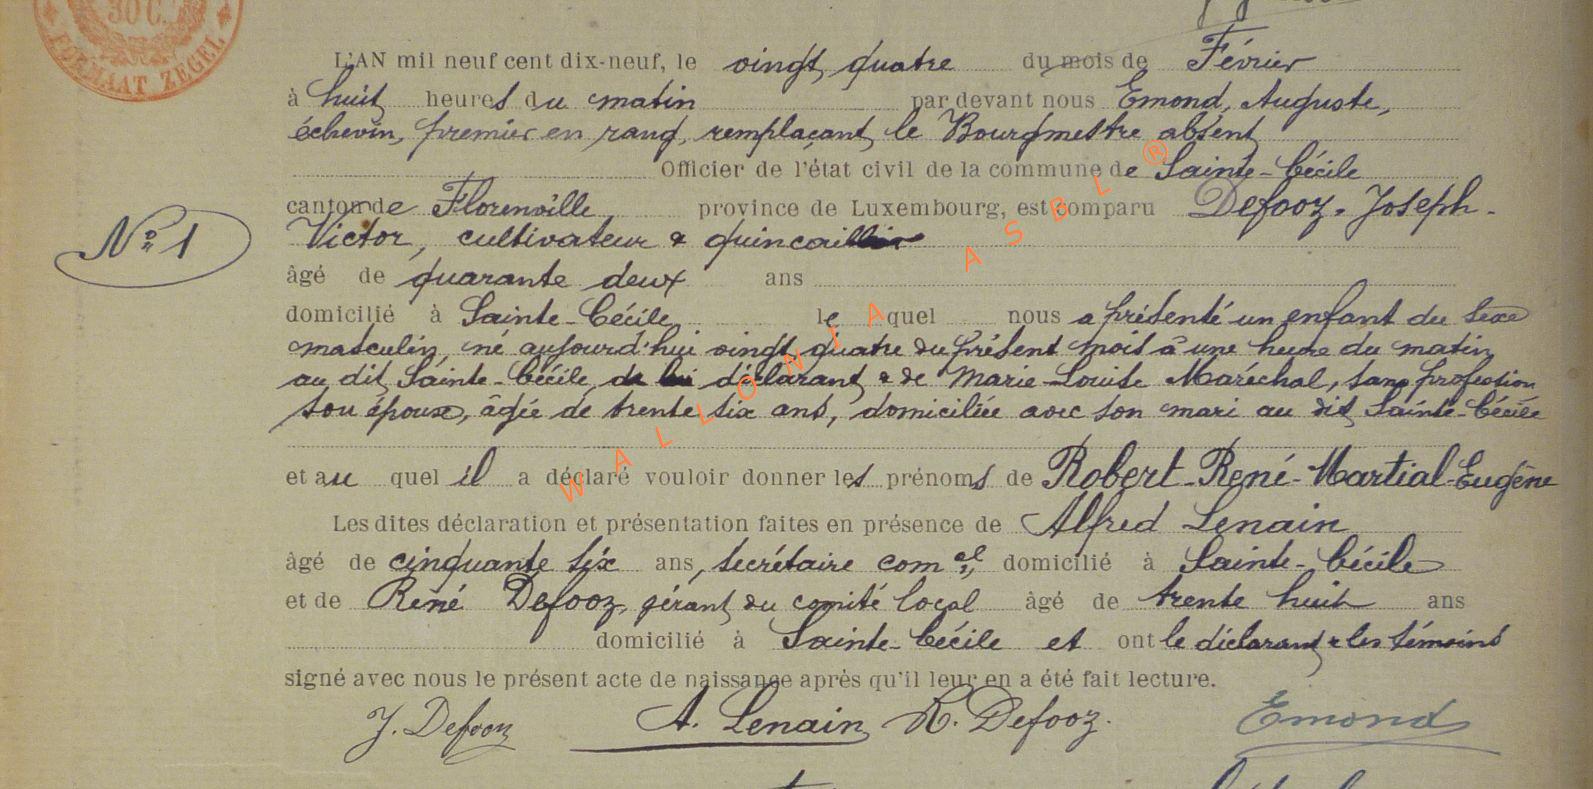 30 C.
FORMAAT ZEGEL
L'AN mil neuf cent dix-neuf, le vingt quatre du mois de Février
à huit heures du matin par devant nous Emond, Auguste,
échevin, premier en rang, remplaçant le Bourgmestre absent
Officier de l'état civil de la commune de Sainte-Cécile
canton de Florenville province de Luxembourg, est comparu Defooz, Joseph-
N° 1
Victor, cultivateur & quincaillier
âgé de quarante deux ans
domicilié à Sainte-Cécile lequel nous a présenté un enfant du sexe
masculin, né aujourd'hui vingt quatre du présent mois à une heure du matin
au dit Sainte-Cécile, de lui déclarant & de Marie-Louise Maréchal, sans profession
son épouse, âgée de trente six ans, domiciliée avec son mari au dit Sainte-Cécile
et au quel il a déclaré vouloir donner les prénoms de Robert-René-Martial-Eugène
Les dites déclaration et présentation faites en présence de Alfred Lenain
âgé de cinquante six ans, secrétaire comal, domicilié à Sainte-Cécile
et de René Defooz, gérant du comité local âgé de trente huit ans
domicilié à Sainte-Cécile et ont le déclarant & les témoins
signé avec nous le présent acte de naissance après qu'il leur en a été fait lecture.
J. Defooz A. Lenain R. Defooz. Emond
WALLONIA ASBL ®